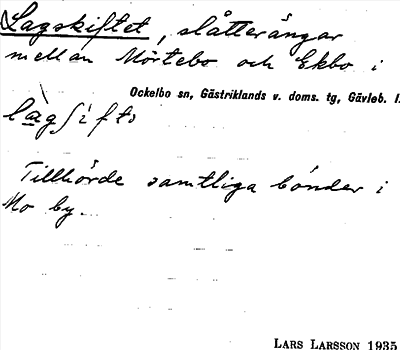 Lagskiftet, slåtterängar
mellan Mörtebo och Ekbo i
Ockelbo sn, Gästriklands v. doms. tg, Gävleb. l.
Tillhörde samtliga bönder i
Mo by.
LARS LARSSON 1935